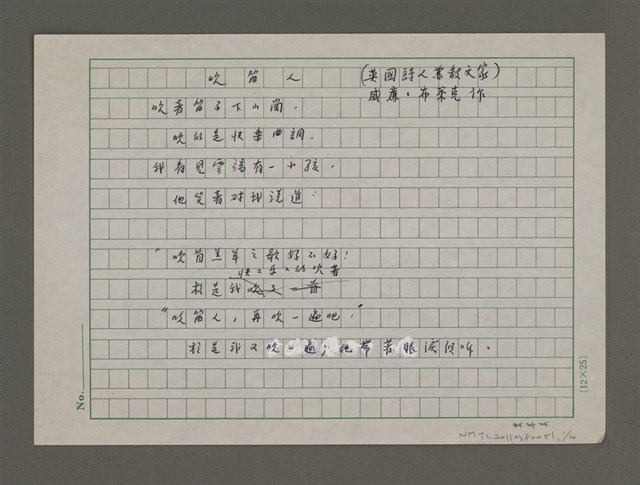 吹笛人
(英國詩人兼散文家)
威廉·布萊克作
吹著笛子下山崗,
吹的是快樂曲調。
我看見雲端有一小孩,
他笑著對我說道:
"吹首羔羊之歌好不好!
快快樂樂的吹著
於是我吹了一首
"吹笛人,再吹一遍吧,"
於是我又吹一遍,他帶著眼淚傾聽。
No.
(12×25)
NMTL20110380051,1/6